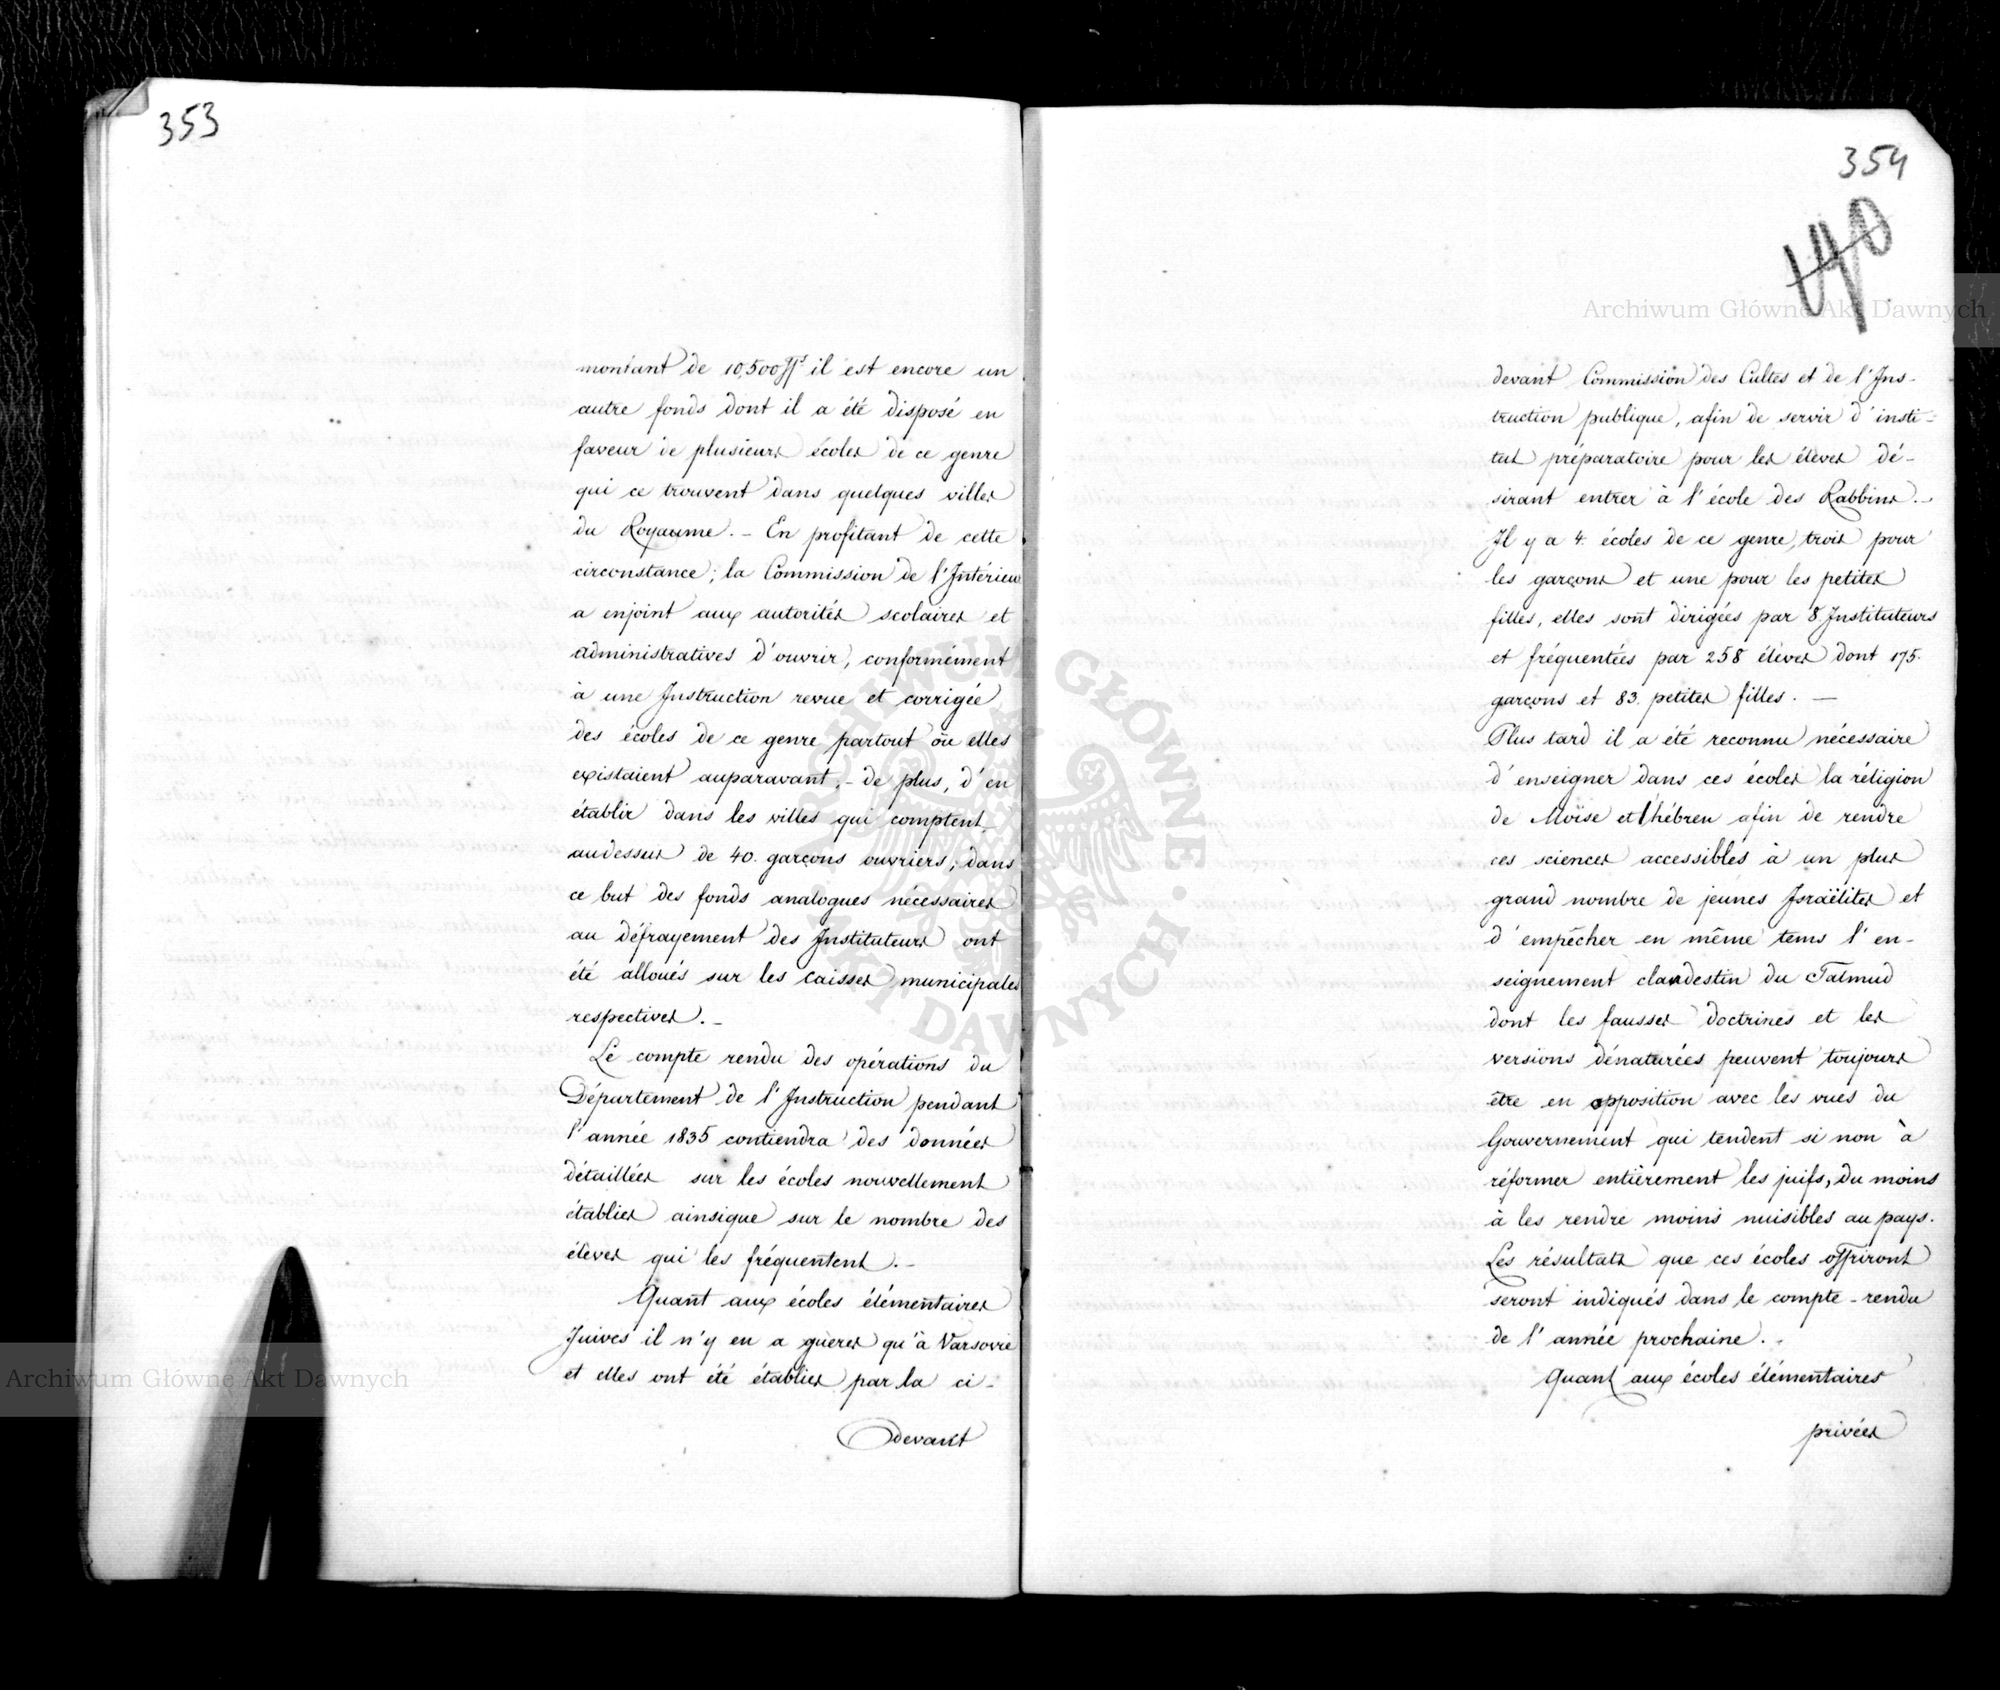 353
montant de 10,500 il est encore un
autre fonds dont il a été disposé en
faveur de plusieurs écoles de ce genre
qui ce trouvent dans quelques villes
du Royaume. - En profitant de cette
circonstance; la Commission de l'Intérieur
a enjoint aux autorités scolaires et
administratives d'ouvrir, conformément
à une Instruction revue et corrigée
des écoles de ce genre partout où elles
existaient auparavant, - de plus, d'en
établir dans les villes qui comptent
audessus de 40. garçons ouvriers; dans
ce but des fonds analogues nécessaires
au défrayement des Instituteurs ont
été alloués sur les caisses municipales
respectives. -
Le compte rendu des opérations du
Département de l'Instruction pendant
l'année 1835 contiendra des données
détaillées sur les écoles nouvellement
établies ainsique sur le nombre des
élèves qui les fréquentent. -
Quant aux écoles élémentaires
Juives il n'y en a guères qu'à Varsovie
et elles ont été établies par la ci-
devant
354
140
devant Commission des Cultes et de l'Ins-
truction publique, afin de servir d'insti-
tut préparatoire pour les élèves dé-
sirant entrer à l'école des Rabbins. -
Il y a 4. écoles de ce genre, trois pour
les garçons et une pour les petites
filles, elles sont dirigées par 8 Instituteurs
et fréquentées par 258 élèves dont 175.
garçons et 83. petites filles. -
Plus tard il a été reconnu nécessaire
d'enseigner dans ces écoles la réligion
de Moïse et l'hébreu afin de rendre
ces sciences accessibles à un plus
grand nombre de jeunes Israëlites et
d'empêcher en même tems l'en-
seignement clandestin du Talmud
dont les fausses doctrines et les
versions dénaturées peuvent toujours
être en opposition avec les vues du
Gouvernement qui tendent si non à
réformer entièrement les juifs, du moins
à les rendre moins nuisibles au pays.
Les résultats que ces écoles offriront
seront indiqués dans le compte-rendu
de l'année prochaine. -
Quant aux écoles élémentaires
privées
Archiwum Główne Akt Dawnych
Archiwum Główne Akt Dawnych
ARCHIWUM GŁÓWNE · AKT DAWNYCH ·